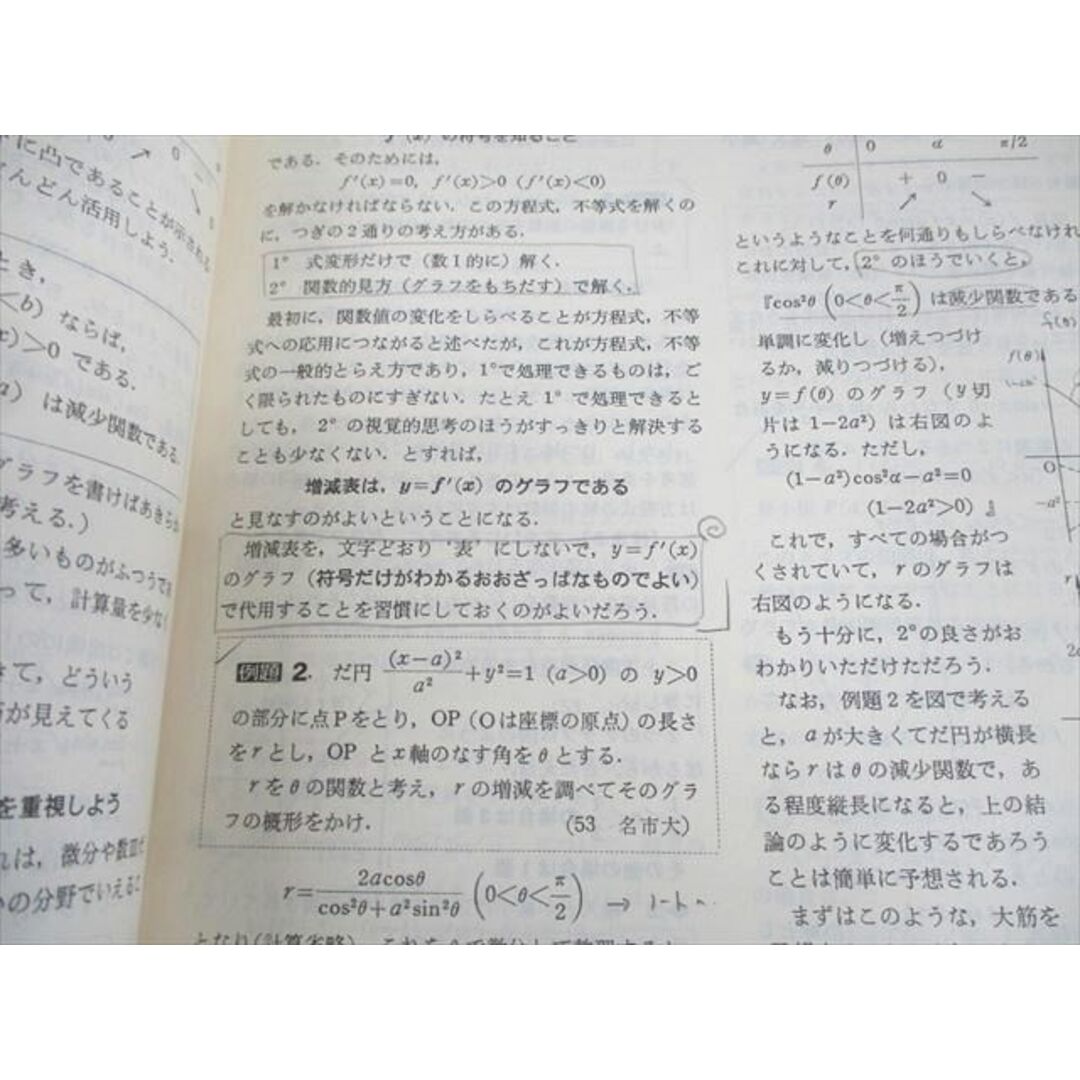 に凸であることが示される
どんどん活用しよう.
とき,
<b) ならば,
x)>0 である.
a) は減少関数である.
グラフを書けばあきらか
考える.)
多いものがふつうで
って, 計算量を少な
きて, どういう
が見えてくる
を重視しよう
れは, 微分や数
の分野でいえるこ
である. そのためには,
f′(x)=0, f′(x)>0 (f′(x)<0)
を解かなければならない. この方程式, 不等式を解くの
に, つぎの2通りの考え方がある.
1° 式変形だけで (数Ⅰ的に) 解く.
2° 関数的見方 (グラフをもちだす) で解く.
最初に, 関数値の変化をしらべることが方程式, 不等
式への応用につながると述べたが, これが方程式, 不等
式の一般的とらえ方であり, 1°で処理できるものは, ご
く限られたものにすぎない. たとえ 1° で処理できると
しても, 2° の視覚的思考のほうがすっきりと解決する
ことも少なくない. とすれば,
増減表は, y=f′(x) のグラフである
と見なすのがよいということになる.
増減表を, 文字どおり “表” にしないで, y=f′(x)
のグラフ (符号だけがわかるおおざっぱなものでよい)
で代用することを習慣にしておくのがよいだろう.
例題 2. だ円 (x−a)²/a²+y²=1 (a>0) の y>0
の部分に点Pをとり, OP (Oは座標の原点) の長さ
をrとし, OP とx軸のなす角をθとする.
rをθの関数と考え, rの増減を調べてそのグラ
フの概形をかけ. (53 名市大)
r=2acosθ/(cos²θ+a²sin²θ) (0<θ<π/2)
となり(計算省略), これをθで微分して整理すると
θ 0 α π/2
f(θ) + 0 −
r ↗ ↘
というようなことを何通りもしらべなけれ
これに対して, 2° のほうでいくと,
『cos²θ (0<θ<π/2) は減少関数である
単調に変化し (増えつづけ
るか, 減りつづける),
y=f(θ) のグラフ (y切
片は 1−2a²) は右図のよ
うになる. ただし,
(1−a²)cos²α−a²=0
(1−2a²>0) 』
これで, すべての場合がつ
くされていて, rのグラフは
右図のようになる.
もう十分に, 2°の良さがお
わかりいただけただろう.
なお, 例題2を図で考える
と, aが大きくてだ円が横長
ならrはθの減少関数で, あ
る程度縦長になると, 上の結
論のように変化するであろう
ことは簡単に予想される.
まずはこのような, 大筋を
f(θ)
O
−a²
r